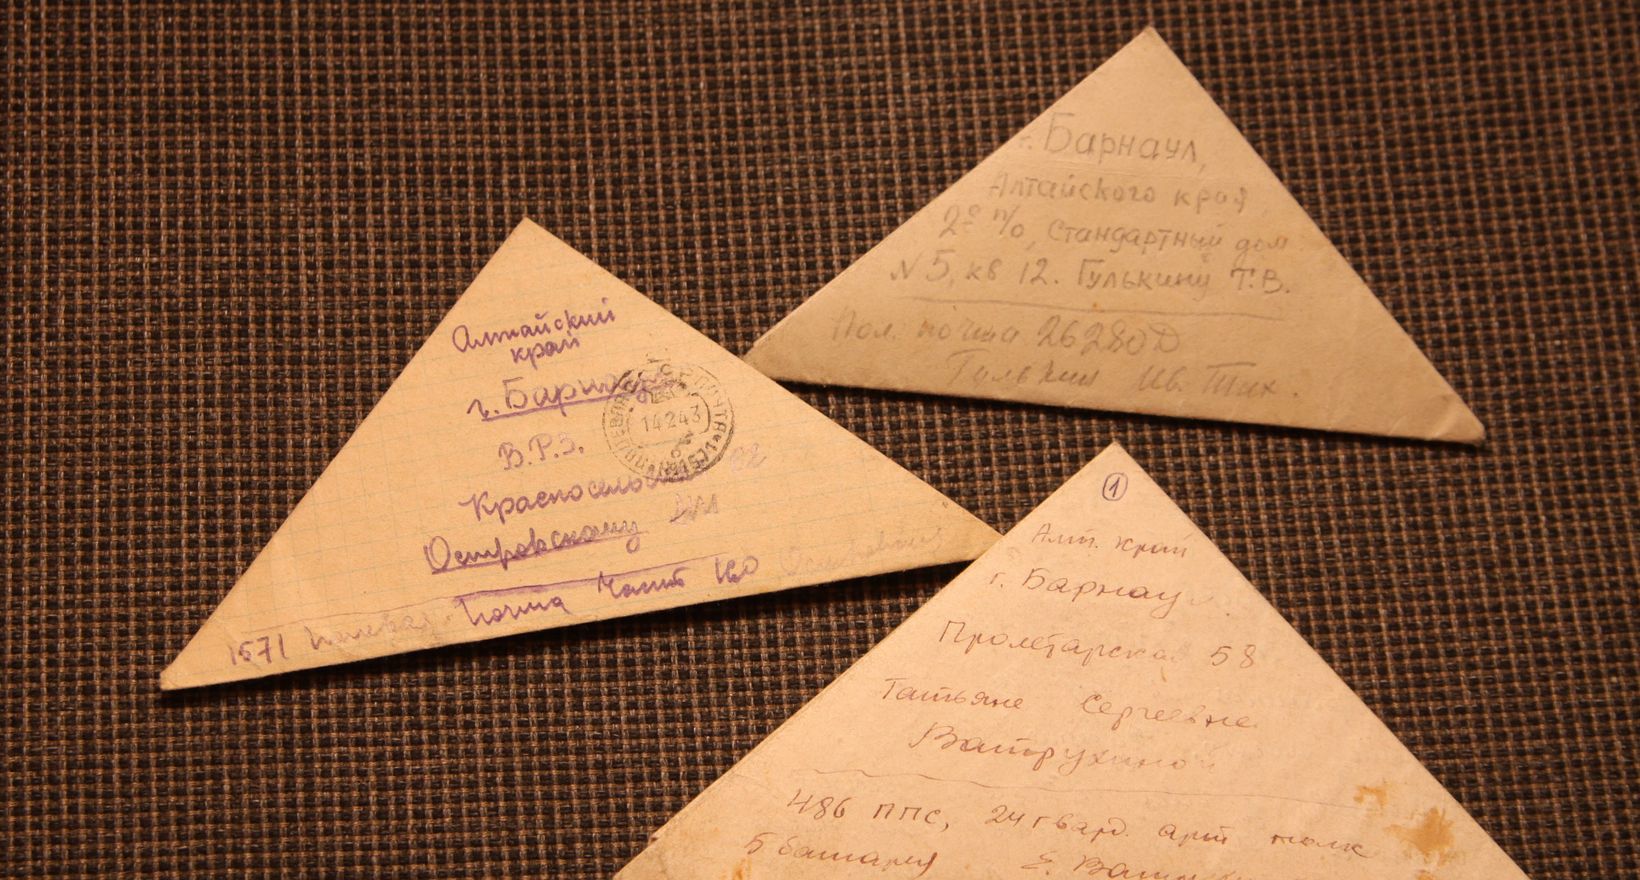 Алтайский
край
г. Барнаул
В.Р.З.
Красносельс
Островскому
1571 Полевая Почта Часть 160
14 2 43
г. Барнаул,
Алтайского края,
2ое п/о, Стандартный дом
№ 5, кв 12. Гулькину Т.В.
Пол. почта 26280Д
Гулькин Ив. Тих.
1
Алт. край
г. Барнаул
Пролетарская 58
Татьяне Сергеевне
Ватрухиной
486 ППС, 24 гвард. арт полк
5 батарея